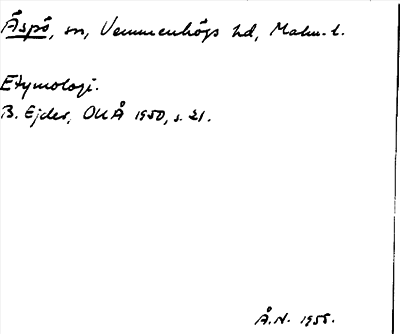 Äspö, sn, Vemmenhögs hd, Malm. l.
Etymologi.
B. Ejder, OUÅ 1950, s. 21.
Å.H. 1958.